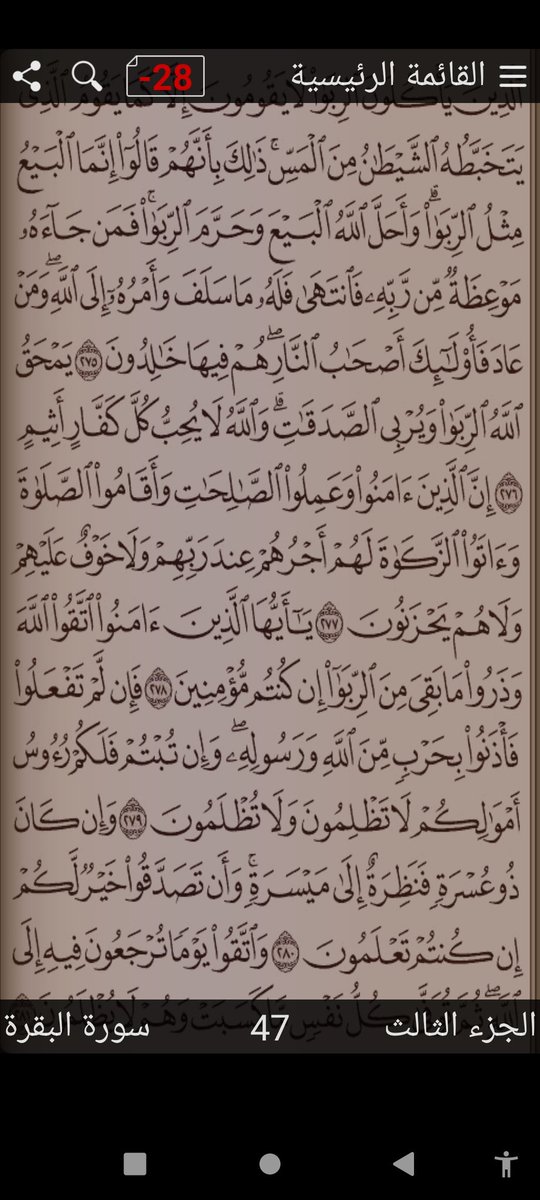 القائمة الرئيسية
-28
ٱلَّذِينَ يَأۡكُلُونَ ٱلرِّبَوٰاْ لَا يَقُومُونَ إِلَّا كَمَا يَقُومُ ٱلَّذِي
يَتَخَبَّطُهُ ٱلشَّيۡطَٰنُ مِنَ ٱلۡمَسِّۚ ذَٰلِكَ بِأَنَّهُمۡ قَالُوٓاْ إِنَّمَا ٱلۡبَيۡعُ
مِثۡلُ ٱلرِّبَوٰاْۗ وَأَحَلَّ ٱللَّهُ ٱلۡبَيۡعَ وَحَرَّمَ ٱلرِّبَوٰاْۚ فَمَن جَآءَهُۥ
مَوۡعِظَةٞ مِّن رَّبِّهِۦ فَٱنتَهَىٰ فَلَهُۥ مَا سَلَفَ وَأَمۡرُهُۥٓ إِلَى ٱللَّهِۖ وَمَنۡ
عَادَ فَأُوْلَٰٓئِكَ أَصۡحَٰبُ ٱلنَّارِۖ هُمۡ فِيهَا خَٰلِدُونَ ٢٧٥ يَمۡحَقُ
ٱللَّهُ ٱلرِّبَوٰاْ وَيُرۡبِي ٱلصَّدَقَٰتِۗ وَٱللَّهُ لَا يُحِبُّ كُلَّ كَفَّارٍ أَثِيمٍ
٢٧٦ إِنَّ ٱلَّذِينَ ءَامَنُواْ وَعَمِلُواْ ٱلصَّٰلِحَٰتِ وَأَقَامُواْ ٱلصَّلَوٰةَ
وَءَاتَوُاْ ٱلزَّكَوٰةَ لَهُمۡ أَجۡرُهُمۡ عِندَ رَبِّهِمۡ وَلَا خَوۡفٌ عَلَيۡهِمۡ
وَلَا هُمۡ يَحۡزَنُونَ ٢٧٧ يَٰٓأَيُّهَا ٱلَّذِينَ ءَامَنُواْ ٱتَّقُواْ ٱللَّهَ
وَذَرُواْ مَا بَقِيَ مِنَ ٱلرِّبَوٰٓاْ إِن كُنتُم مُّؤۡمِنِينَ ٢٧٨ فَإِن لَّمۡ تَفۡعَلُواْ
فَأۡذَنُواْ بِحَرۡبٖ مِّنَ ٱللَّهِ وَرَسُولِهِۦۖ وَإِن تُبۡتُمۡ فَلَكُمۡ رُءُوسُ
أَمۡوَٰلِكُمۡ لَا تَظۡلِمُونَ وَلَا تُظۡلَمُونَ ٢٧٩ وَإِن كَانَ
ذُو عُسۡرَةٖ فَنَظِرَةٌ إِلَىٰ مَيۡسَرَةٖۚ وَأَن تَصَدَّقُواْ خَيۡرٞ لَّكُمۡ
إِن كُنتُمۡ تَعۡلَمُونَ ٢٨٠ وَٱتَّقُواْ يَوۡمٗا تُرۡجَعُونَ فِيهِ إِلَى
ٱللَّهِۖ ثُمَّ تُوَفَّىٰ كُلُّ نَفۡسٖ مَّا كَسَبَتۡ وَهُمۡ لَا يُظۡلَمُونَ ٢٨١
الجزء الثالث 47 سورة البقرة